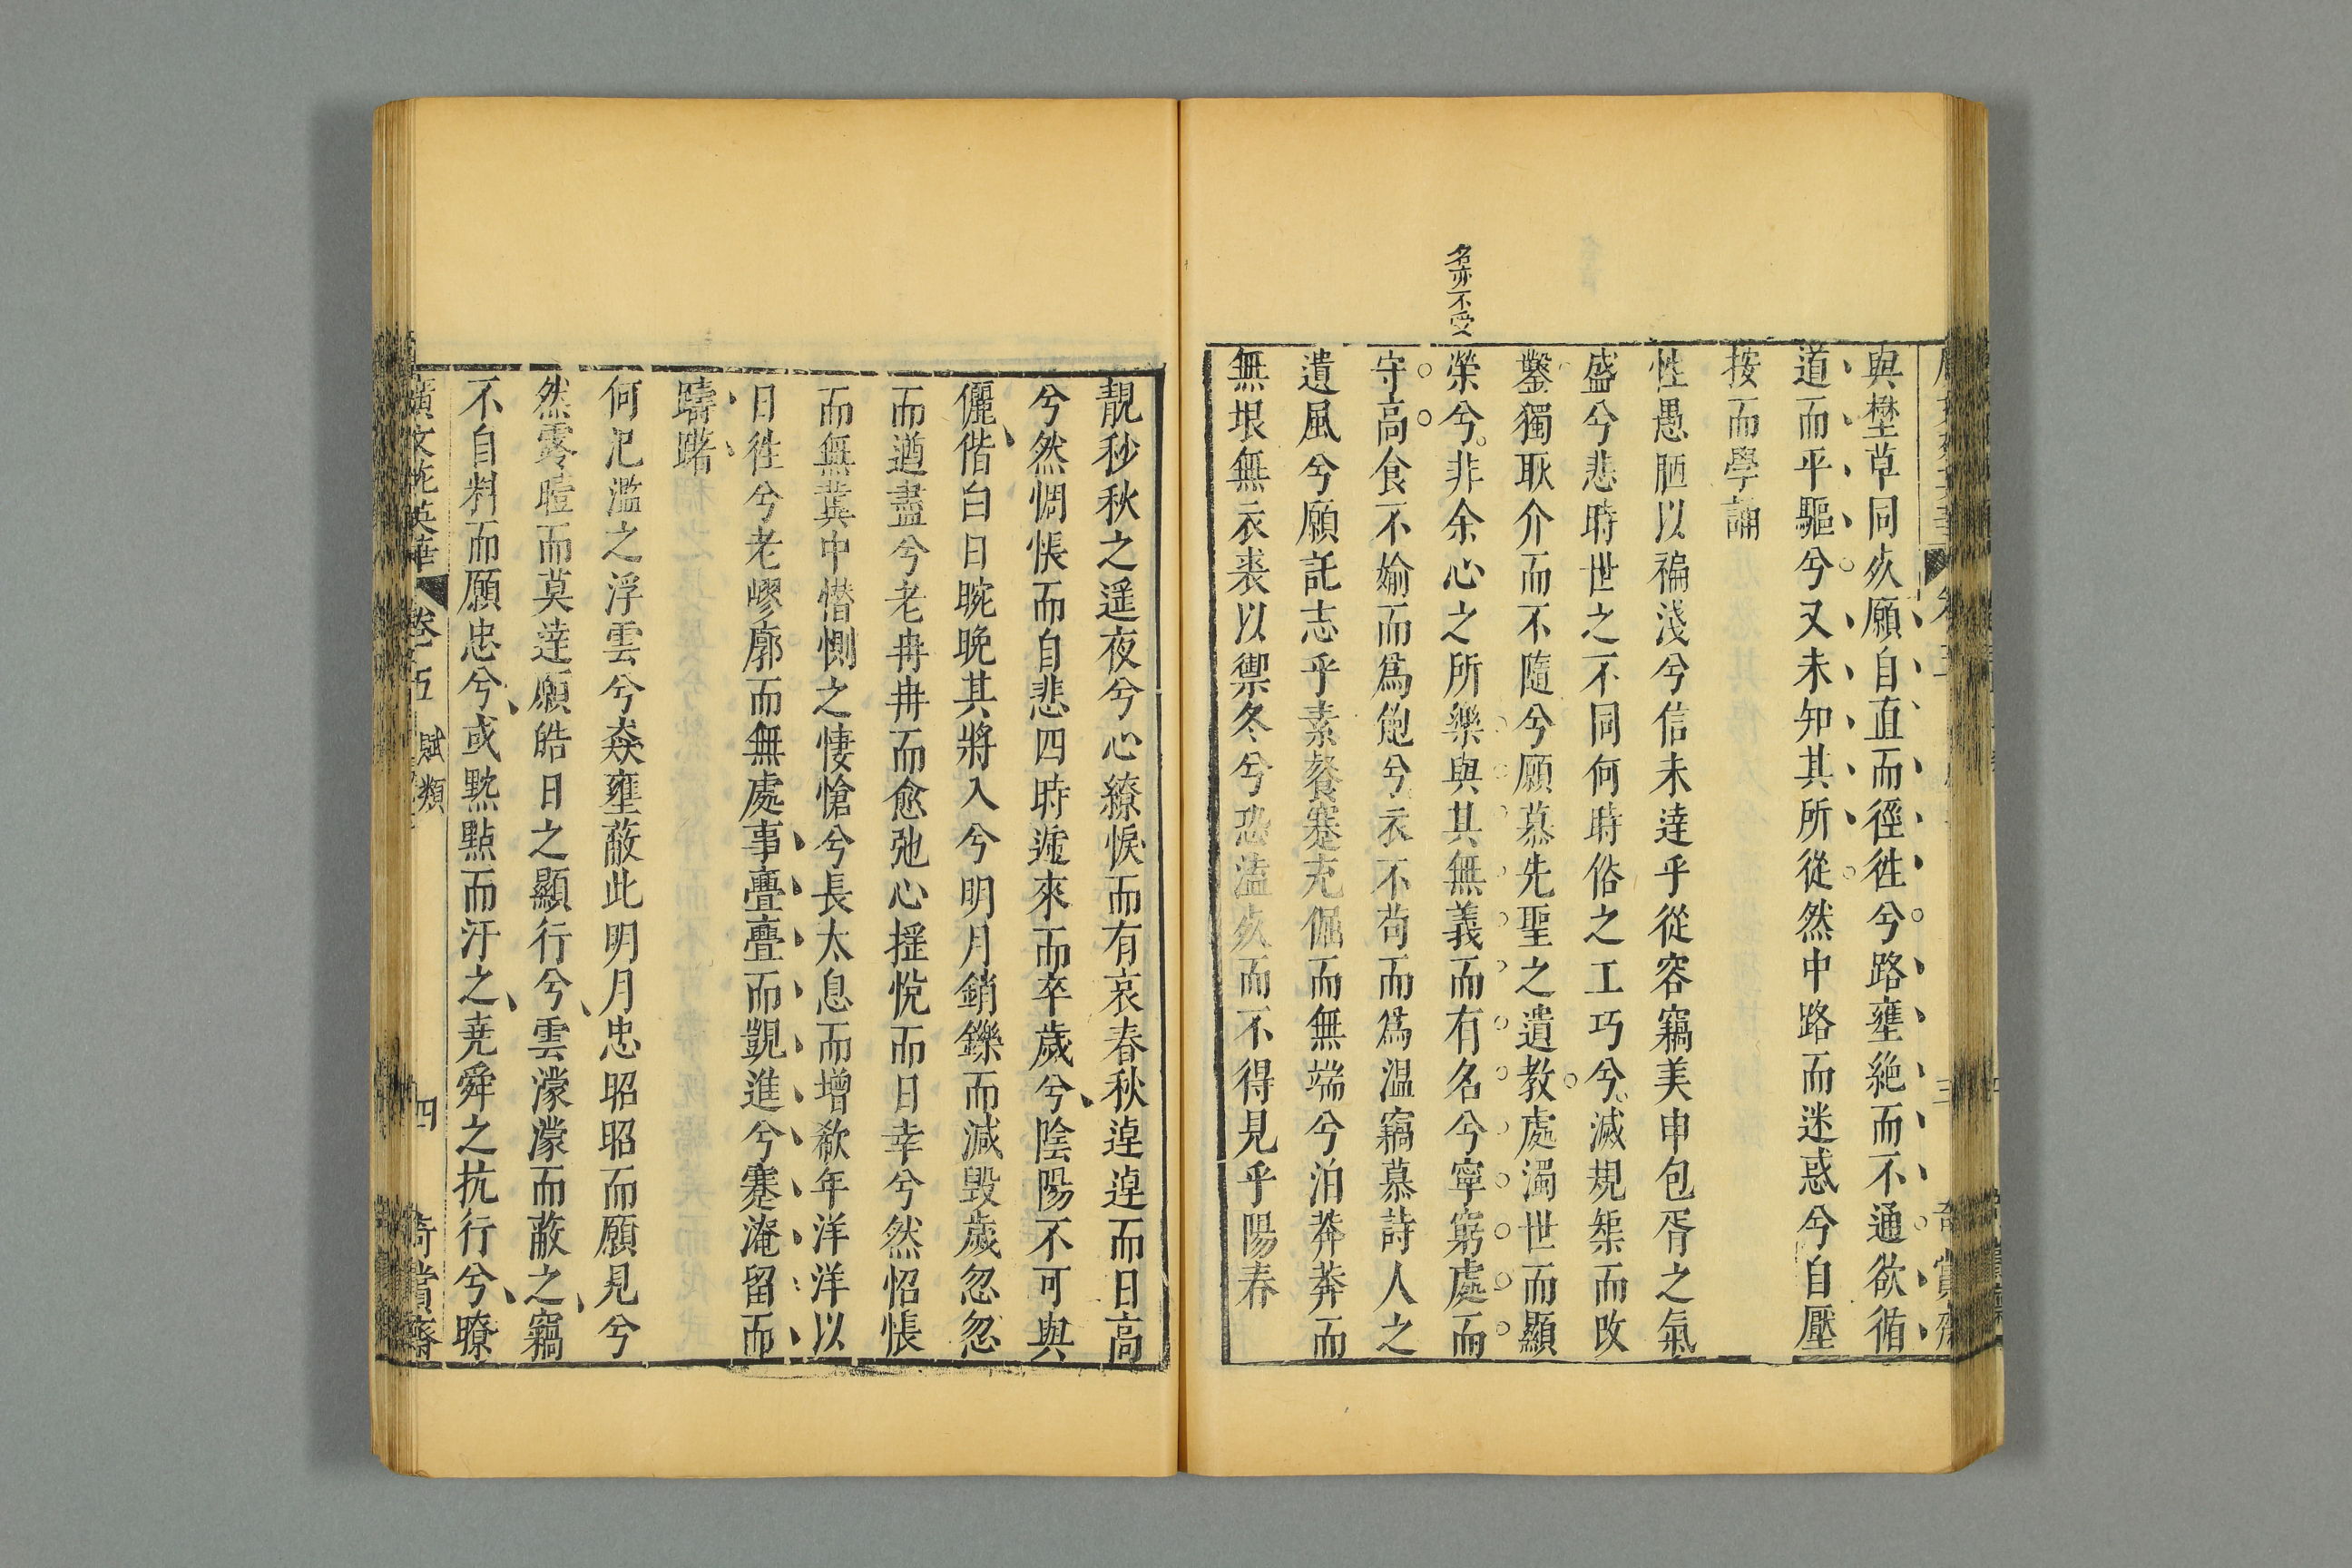 名亦不受
與埜草同死願自直而徑徃兮路壅絶而不通欲循
道而平驅兮又未知其所從然中路而迷惑兮自壓
按而學誦
性愚陋以褊淺兮信未達乎從容竊美申包胥之氣
盛兮悲時世之不同何時俗之工巧兮滅規榘而改
鑿獨耿介而不隨兮願慕先聖之遺教處濁世而顯
榮兮非余心之所樂與其無義而有名兮寧窮處而
守高食不媮而爲飽兮衣不茍而爲温竊慕詩人之
遺風兮願託志乎素餐蹇充倔而無端兮泊莽莽而
無垠無衣裘以禦冬兮恐溘死而不得見乎陽春
靚秒秋之遥夜兮心繚悷而有哀春秋逴逴而日高
兮然惆悵而自悲四時遞來而卒歲兮陰陽不可與
儷偕白日晼晚其將入兮明月銷鑠而減毁歲忽忽
而遒盡兮老冉冉而愈弛心摇悅而日幸兮然怊悵
而無冀中憯惻之悽愴兮長太息而增欷年洋洋以
日徃兮老嵺廓而無處事亹亹而覬進兮蹇淹留而
躊躇
何氾濫之浮雲兮猋壅蔽此明月忠昭昭而願見兮
然霠曀而莫達願皓日之顯行兮雲濛濛而蔽之竊
不自料而願忠兮或黕點而汙之堯舜之抗行兮瞭
廣文苑英華 卷五 賦類 四 奇賞齋